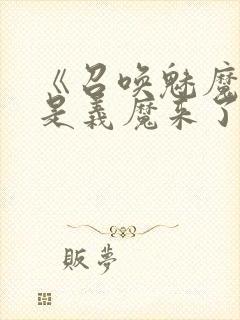 《召唤魅魔
是義魔来了
販夢